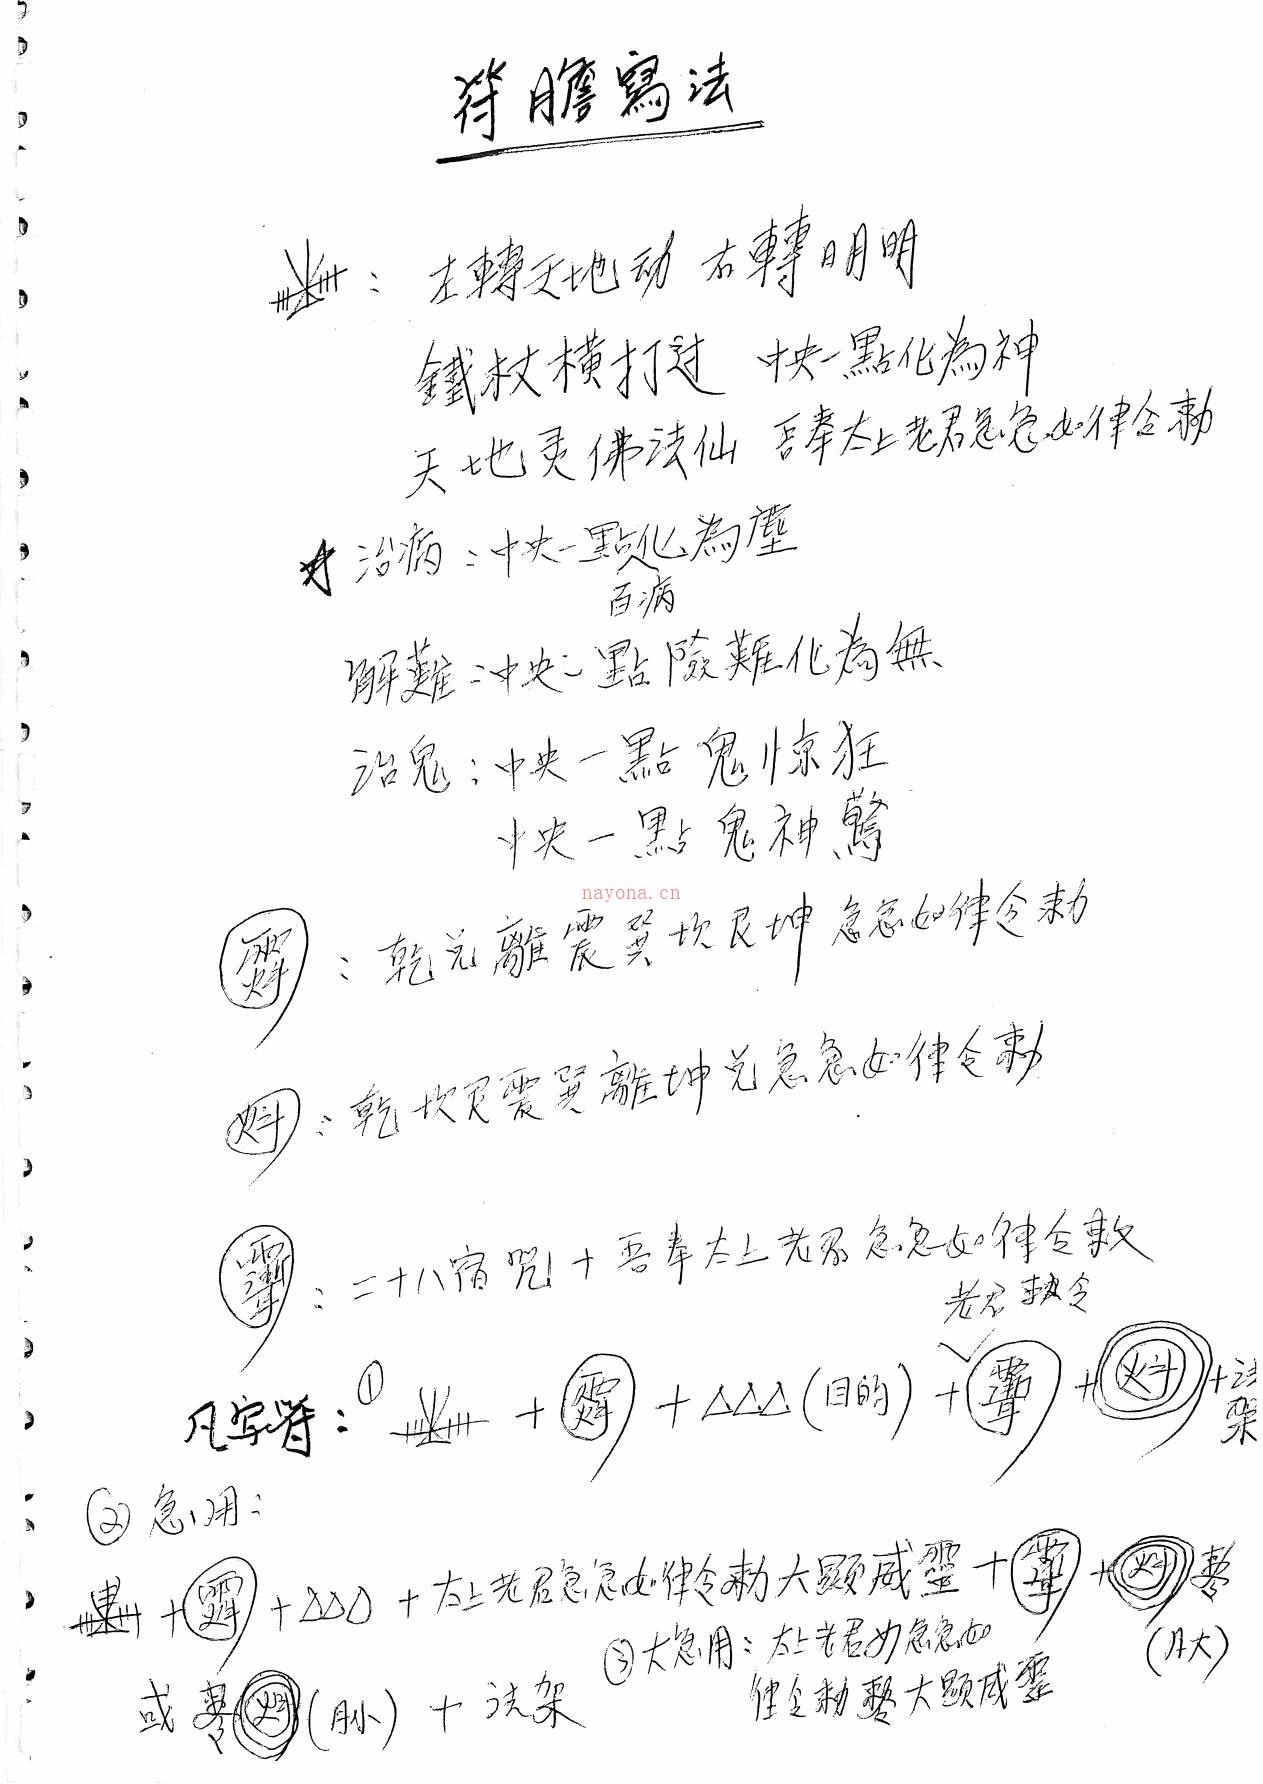 符膽寫法
：左轉天地动 右轉日月明
鐵杖橫打过 中央一點化為神
天地灵佛法仙 吾奉太上老君急急如律令勅
治病：中央一點化為塵
百病
解難：中央一點險難化為無
治鬼：中央一點鬼惊狂
中央一點鬼神驚
nayona.cn
：乾兌離震巽坎艮坤急急如律令勅
：乾坎艮震巽離坤兌急急如律令勅
：二十八宿咒＋吾奉太上老君急急如律令敕
老君勅令
凡字符：① ＋ ＋△△△(目的)＋ ＋ ＋法架
② 急用：
＋ ＋△△△＋太上老君急急如律令勅大顯威靈＋ ＋
(月大)
③大急用：太上老君如急急如
律令勅 大顯威靈
或 (月小)＋法架